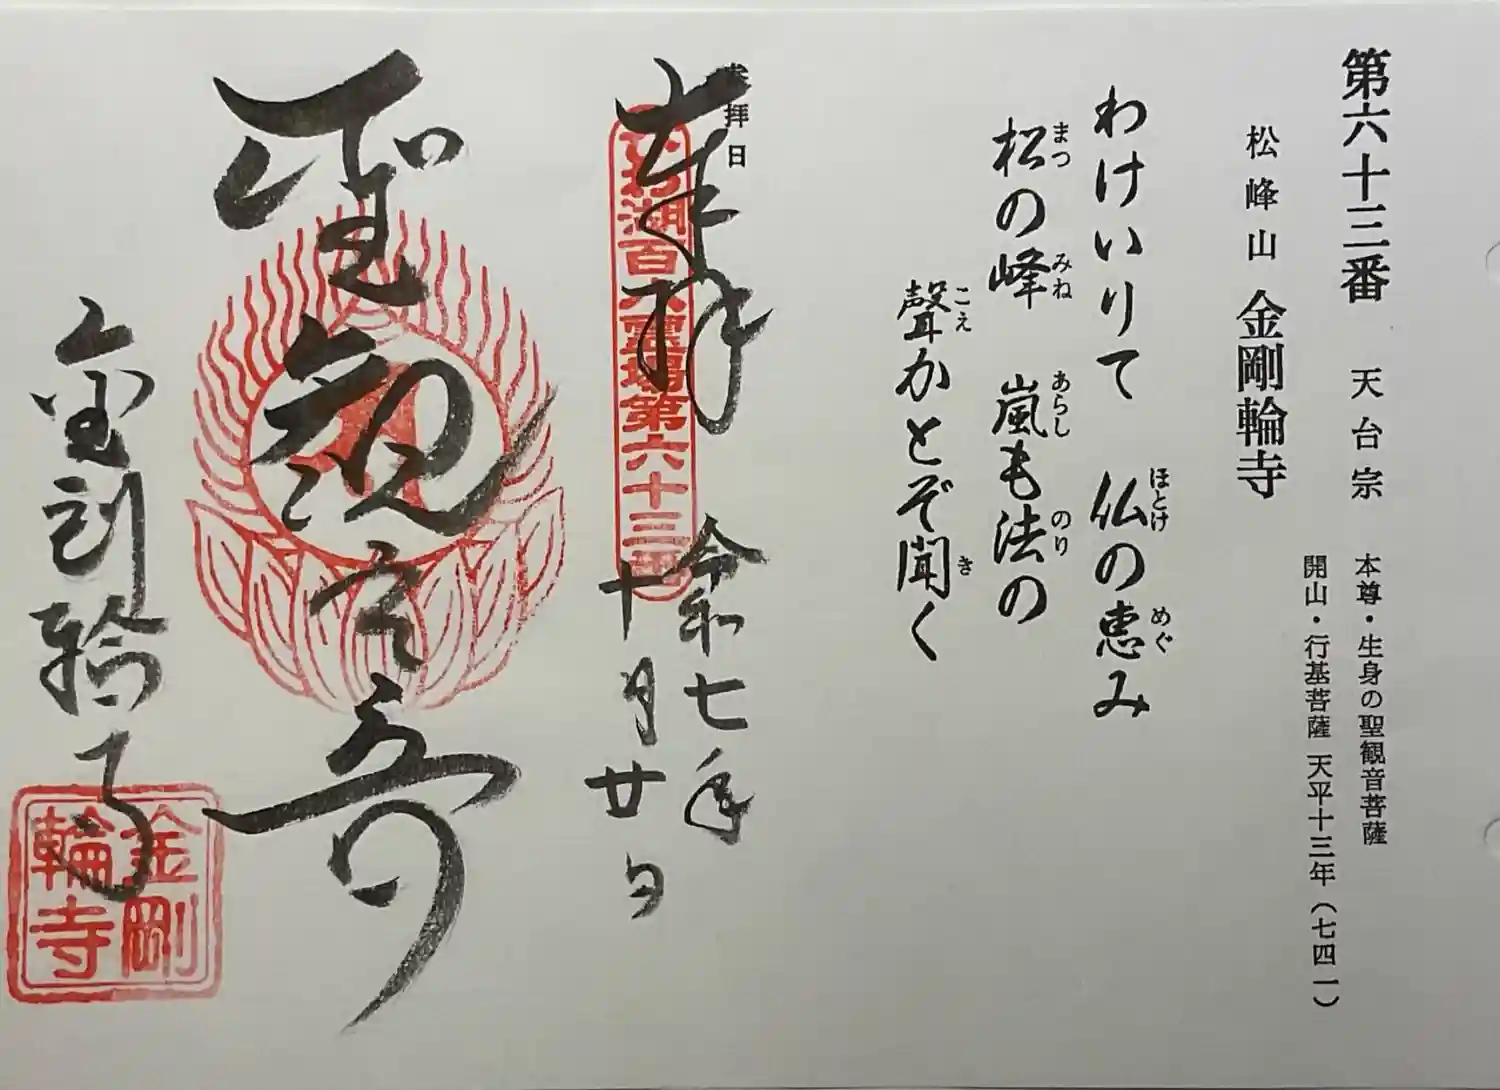 第六十三番 天台宗
本尊・生身の聖観音菩薩
開山・行基菩薩 天平十三年(七四一)
松峰山 金剛輪寺
わけいりて 仏の恵み
ほとけ
めぐ
松の峰 嵐も法の
まつ
みね
あらし
のり
聲かとぞ聞く
こえ
き
参拝日
奉拝
びわ湖百八霊場第六十三番
令和七年
十月廿日
聖観音
金剛輪寺
金剛
輪寺